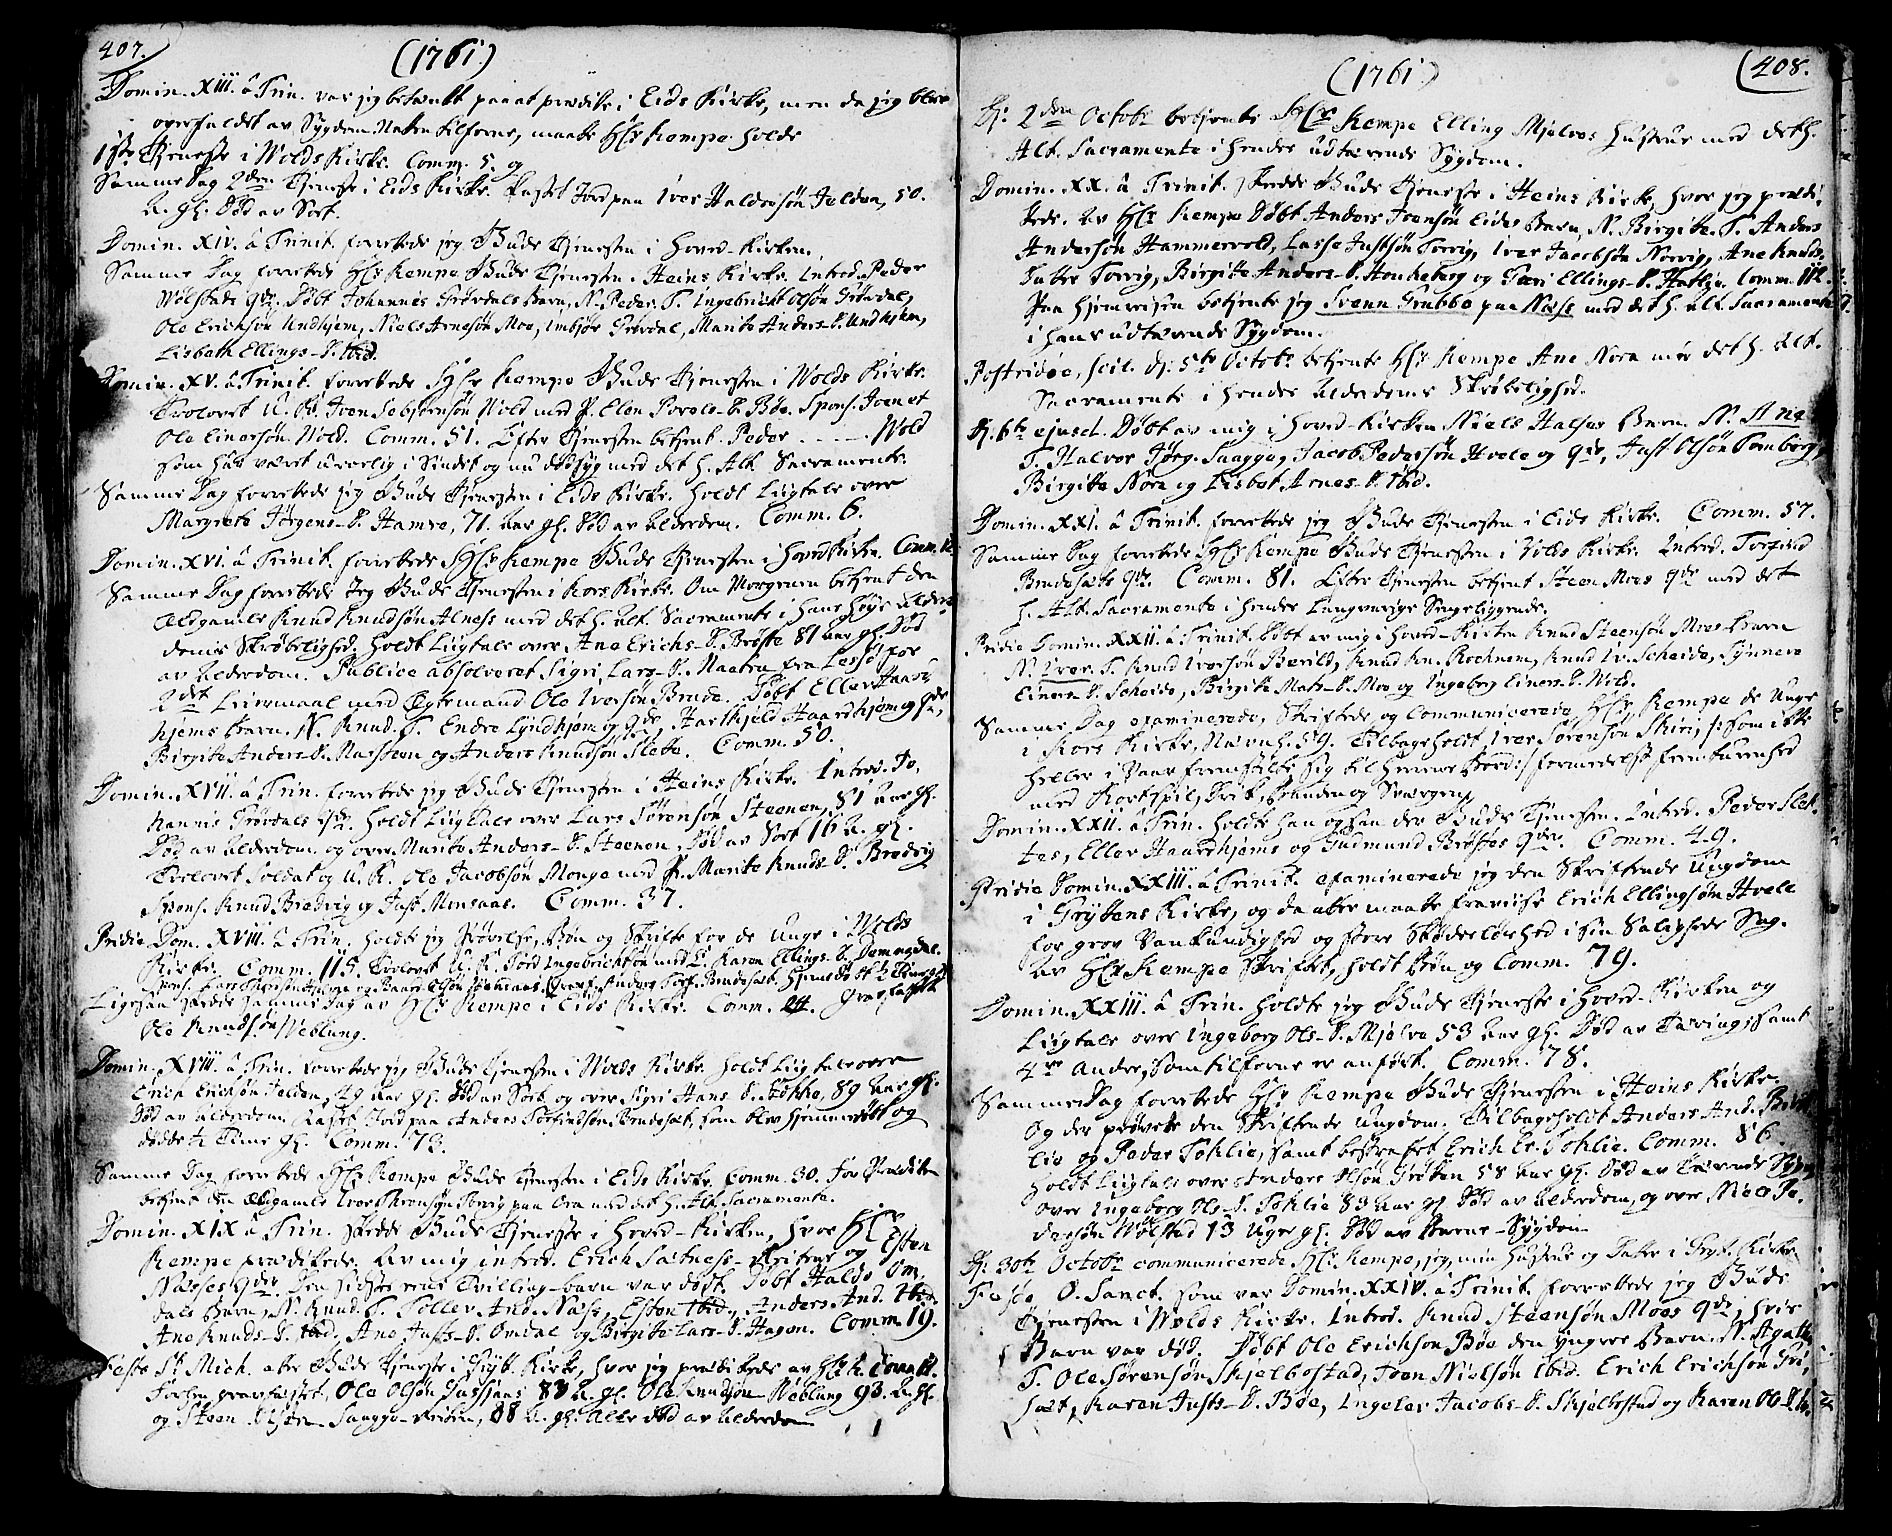 407.
(1761)
Domin. XIII. à Trin. var jeg betænkt paa at prædike i Eids Kirke, men da jeg blev
overfaldet av Sygdom Natten tilforne, maatte Hr. Kempe holde
1ste Tjeneste i Wolds Kirke. Comm. 5. og
Samme Dag 2den Tjeneste i Eids Kirke. Kastet Jord paa Iver Haldorsøn Jeldan, 50.
A. gl. Død av Sott.
Domin. XIV. à Trinit. forrettede jeg Guds Tjenesten i Hoved-Kirken.
Samme Dag forrettede Hr. Kempe Guds Tjenesten i Heins Kirke. Introd. Peder
Wolstads qde. Døbt Johannis Grøvdals Barn, N. Peder. T. Ingebricht Olsøn Grøvdal,
Ole Erichsøn Undhjem, Niels Arnesøn Moe, Imbjør Grøvdal, Marite Anders-D. Undhjem,
Lisbeth Ellings-D. Ibid.
Domin. XV. à Trinit. forrettede Hr. Kempe Guds Tjenesten i Wolds Kirke.
Trolovet U. K. Joen Jobstensøn Wold med P. Elen Povels-D. Bøe. Spons. Joen et
Ole Einersøn Wold. Comm. 51. Efter Tjenesten betjent Peder - - - - Wold
som har været urolig i Sindet og nu dødsyg med det h. Alt. Sacramente.
Samme Dag forrettede jeg Guds Tjenesten i Eids Kirke. Holdt Liigtale over
Margrete Jørgens-D. Hamre, 71. Aar gl. Død av Alderdom. Comm. 6.
Domin. XVI. à Trinit. forrettede Hr. Kempe Guds Tjenesten i Hoved Kirken. Comm. 12
Samme Dag forrettede Jeg Guds Tjenesten i Kors Kirke. Om Morgenen betjent den
Ældgamle Knud Knudsøn Alness med det h. Alt. Sacramente i hans høye Alder-
doms Skrøbelighed. Holdt Liigtale over Ane Erichs-D. Brøste 81 Aar gl. Død
av Alderdom. Publice absolveret Sigri Lars-D. Naaten fra Lessøe for
2det Leiermaal med Ægtemand Ole Iversøn Brude. Døbt Eller Haard-
hjems Barn. N. Knud. T. Endre Lyndhjem og qde, Hartkield Haardhjem og qde,
Birgite Anders-D. Marsteen og Anders Knudsøn Slette. Comm. 50.
Domin. XVII. à Trin. forrettede jeg Guds Tjenesten i Heins Kirke. Introd. Jo-
hannis Grøvdals qde. Holdt Liigtale over Lars Sørensøn Steenen, 81 Aar gl.
Død av Alderdom og over Marite Anders-D. Steenen, Død av Sott 16 A. gl.
Trolovet Soldat og U. K. Ole Jacobsøn Monge med P. Marite Knuds-D. Bredvig
Spons. Knud Bredvig og Just Monsaas. Comm. 37.
Pridie Dom. XVIII. à Trin. holdt jeg Prøvelse, Bøn og Skrifte for de Unge i Wolds
Kirke. Comm. 115. Trolovet U. K. Tord Ingebrichtsøn med P. Karen Ellings-D. Dommedal.
Ligesaa skedde samme Dag av Hr. Kempe i Eids Kirke. Comm. 24. Gravfæstet
Ole Knudsøn Weblung.
Domin. XVIII. à Trin. forrettede jeg Guds Tjenesten i Wolds Kirke. Holdt Liigtale over
Erich Erichsøn Jeldan, 49 Aar gl. Død av Sott og over Sigri Hans-D. Løkke, 89 Aar gl.
Død av Alderdom. Kastet Jord paa Anders Torfindsøn Brudesæt, som blev hjemmedøbt og
døde ½ Time gl. Comm. 73.
Samme Dag forrettede Hr. Kempe Guds Tjenesten i Eids Kirke. Comm. 30. For Prædiken
betjent den Ældgamle Iver Iversøn Torvig paa Ora med det h. Alt. Sacramente.
Domin. XIX à Trin. skedde Guds Tjeneste i Hoved-Kirken, hvor Hr.
Kempe prædikede. Av mig introd. Erich Sætness-Reiters og Esten
Næsses qder. Den sidstes eene Tvilling-barn var død. Døbt Halds Om-
dals Barn, N. Knud. T. Tollev And. Næss, Esten Ibid., Anders And. Ibid.
Ane Knuds-D. Ibid, Ane Justs-D. Omdal og Birgite Lars-D. Hagen. Comm. 19.
Festo St. Mich. atter Guds Tjeneste i Gryt. Kirke, hvor jeg prædikede av
Ole Olsøn 83 A. gl. Ole Knudsøn Weblung 93. A. gl.
og Steen Olsøn Saugge-Reiten, 88 A. gl. Alle død av Alderdom
(1761)
408.
D. 2den Octobr. betjente Hr. Kempe Elling Mjelves Hustrue med det h.
Alt. Sacramente i hendes udtærende Sygdom.
Domin. XX. à Trinit. skedde Guds Tjeneste i Heins Kirke, hvor jeg prædi-
kede. Av Hr. Kempe Døbt Anders Joensøn Eides Barn, N. Birgite. T. Anders
Andersøn Hammervold, Lasse Justsøn Torvig, Iver Jacobsøn Norvig, Ane Knuds-
Datter Torvig, Birgite Anders-D. Honkeberg og Guri Ellings-D. Hatlje. Comm. 112.
Paa Hjemreisen betjente jeg Svenn Grubbe paa Næss med det h. Alt. Sacramente
i hans udtærende Sygdom.
Postridie, scil. d. 5te Octobr. betjente Hr. Kempe Ane Nora med det h. Alt.
Sacramente i hendes Alderdoms Skrøbelighed.
D. 6te ejusd. Døbt av mig i Hoved-Kirken Niels Halses Barn. N. Ane
T. Halvor Jørg. Saugge, Jacob Pedersøn Hvele og qde, Just Olsøn Tomberg,
Birgite Nora og Lisbet Arnes-D. Ibid.
Domin. XXI. à Trinit. forrettede jeg Guds Tjenesten i Eids Kirke. Comm. 57.
Samme Dag forrettede Hr. Kempe Guds Tjenesten i Volds Kirke. Introd. Torfind
Brudesæts qde. Comm. 81. Efter Tjenesten betjent Steen Moes qde med det
h. Alt. Sacramente i hendes Langvarige Sengeliggende.
Pridie Domin. XXII. à Trinit. Døbt av mig i Hoved-Kirken Knud Steensøn Moes Barn
N. Iver. T. Knud Iversøn Bærild, Knud Kn. Rochnem, Knud Iv. Scheide, Synnove
Einers-D. Scheide, Birgite Mats-D. Moe og Ingeborg Einers-D. Wold.
Samme Dag examinerede, Skriftede og Communicerede Hr. Kempe de Unge
i Kors Kirke, Nævnl. 59. Tilbageholdt Iver Sørensøn Skiri, /: som ikke
heller i Vaar fremstilte sig til Herrens Bord :/ formedelst fremturenhed
med Kortspil, Drik, Banden og Sværgen.
Domin. XXII. à Trin. holdt han ogsaa der Guds Tjenesten. Introd. Peder Slet-
tes, Eller Haardhjems og Gudmund Brøstes qder. Comm. 49.
Pridie Domin. XXIII. à Trinit. examinerede jeg den Skriftende Ungdom
i Gryttens Kirke, og da atter maatte fraviise Erich Ellingsøn Hvele
for grov Vankundighed og store Skødesløshed i sin Saligheds Sag.
Av Hr. Kempe Skriftet, holdt Bøn og Comm. 79.
Domin. XXIII. à Trin. holdte jeg Guds Tjeneste i Hoved-Kirken og
Liigtale over Ingeborg Ols-D. Mjelve 53 Aar gl. Død av Tæring; samt
4re andre, som tilforne er anført. Comm. 78.
Samme Dag forrettede Hr. Kempe Guds Tjenesten i Heins Kirke.
Og der prøvete den Skriftende Ungdom. Tilbageholdt Anders And. Birke-
lie og Peder Toklie, samt bestraffet Erich Er. Toklie. Comm. 86.
Holdt Liigtale over Anders Olsøn Grøtten 58 Aar gl. Død av Tærende Sygd.
over Ingeborg Ols-D. Toklie 83 Aar gl. Død av Alderdom, og over Niels Pe-
dersøn Wolstad 13 Uger gl. Død av Barne-Sygdom.
D. 30te Octobr. communicerede Hr. Kempe, jeg, min Hustrue og Datter i Gryt. Kirke.
Festo O. Sanct. som var Domin. XXIV. à Trinit. forrettede jeg Guds
Tjenesten i Wolds Kirke. Introd. Knud Steensøn Moes qde, hvis
Barn var død. Døbt Ole Erichsøn Bøe den yngres Barn. N. Agathe
T. Ole Sørensøn Skjelbostad, Joen Nielsøn Ibid. Erich Erichsøn Gri-
sæt, Karen Justs-D. Bøe, Ingeler Jacobs-D. Skjelbostad og Karen Ol-D. Ib.